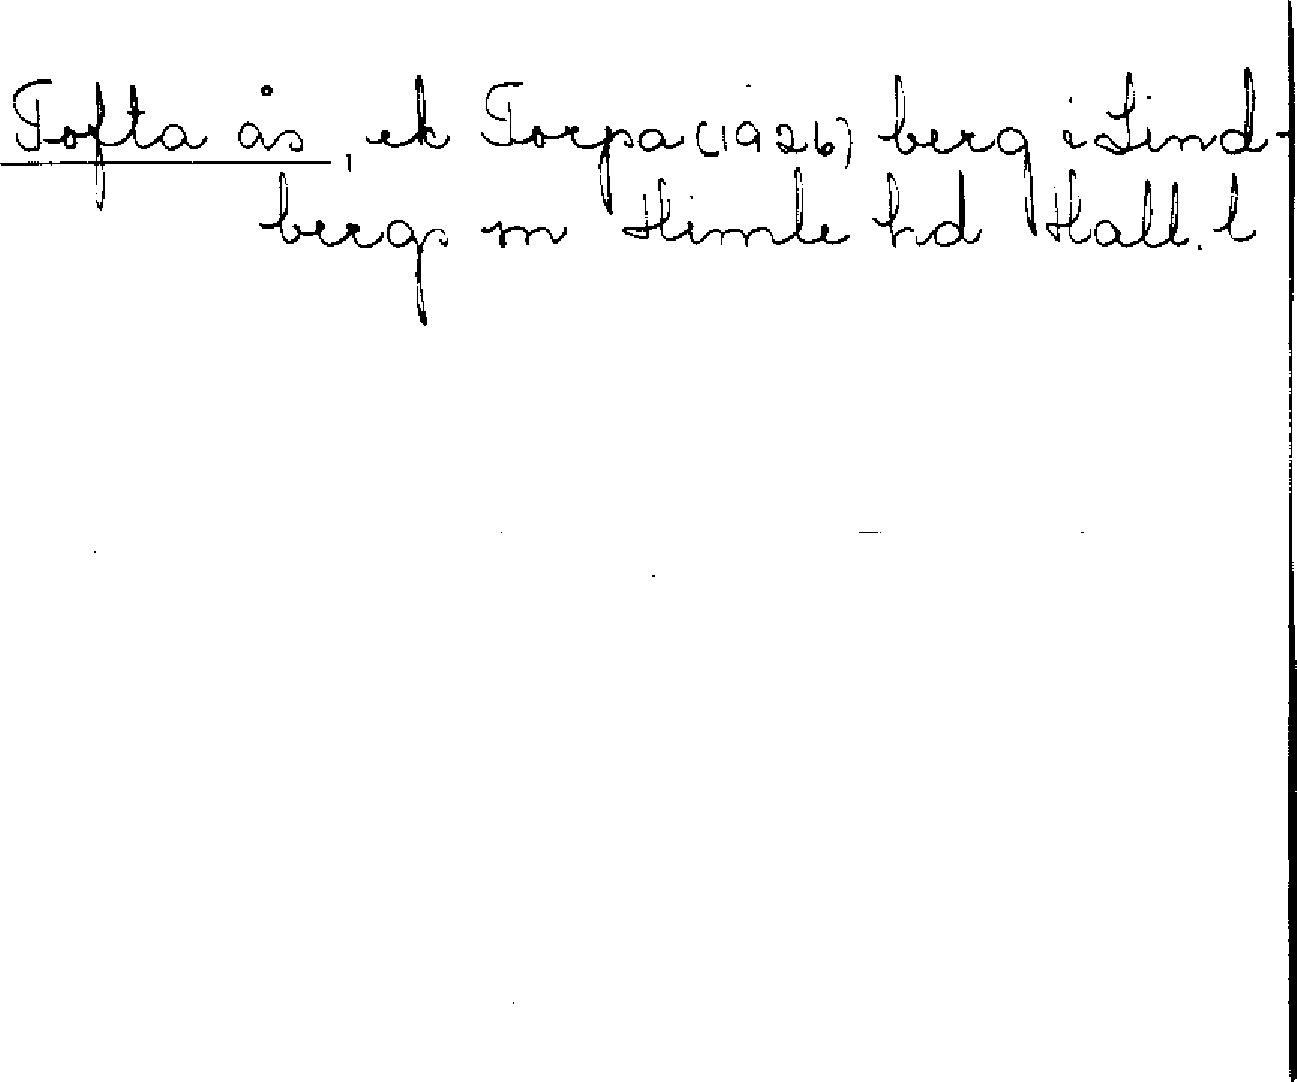 Tofta ås, ek Torpa (1926) berg i Lind-
bergs sn Himle hd Hall. l